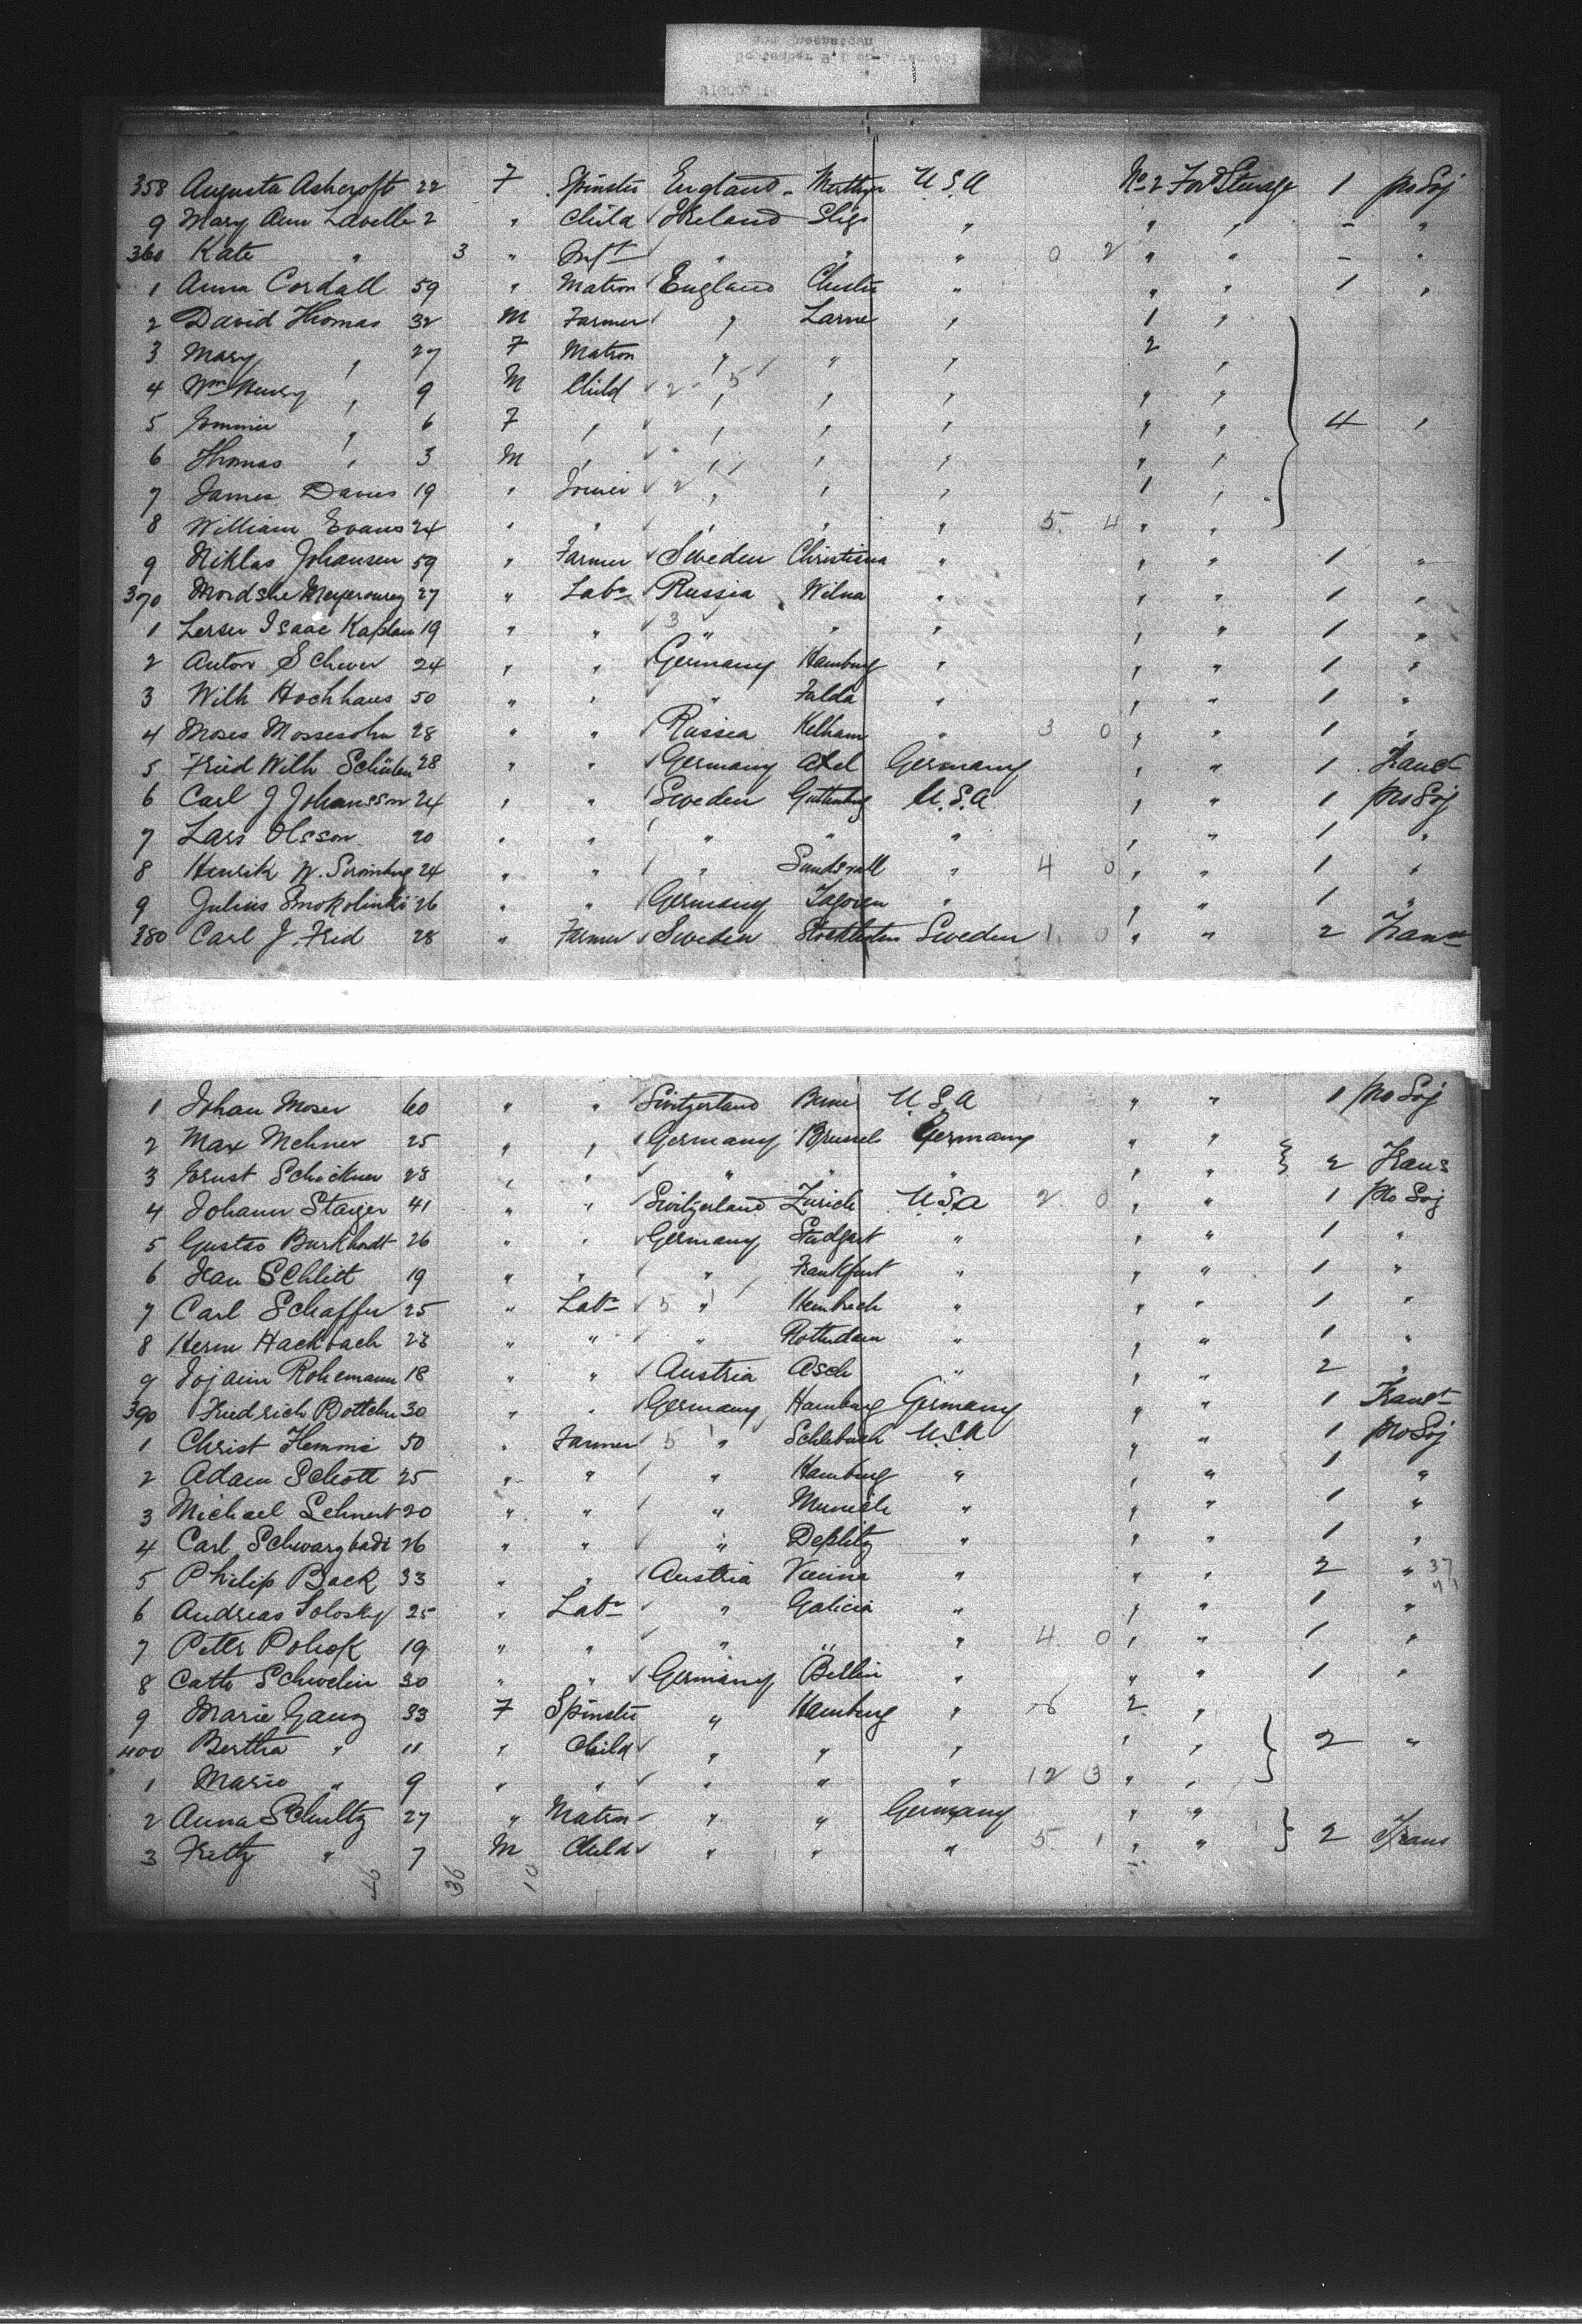 358 Augusta Ashcroft 22 F Spinster England Merthyr U.S.A No 2 For'd Steerage 1 pro Soj
9 Mary Ann Lavelle 2 " Child Ireland Sligo " " " - "
360 Kate " 3 " Inft " " " 0 2 " " - "
1 Anna Cordall 59 " Matron England Chester " " " 1 "
2 David Thomas 32 M Farmer " Larne " 1 "
3 Mary " 27 F Matron " " " 2 "
4 Wm Henry " 9 M Child 2 5 " " " " "
5 Emmie " 6 F " " " " " " 4 "
6 Thomas " 3 M " " " " " "
7 James Davies 19 " Joiner 2 " " " 1 "
8 William Evans 24 " " " " " 5 4 " "
9 Niklas Johansen 59 " Farmer Sweden Christiana " " " 1 "
370 Mordshe 27 " Labr Russia Wilna " " " 1 "
1 Leiser Isaac Kaplan 19 " " 3 " " " " " 1 "
2 Anton Scherer 24 " " Germany Hamburg " " " 1 "
3 Wilh Hochhaus 50 " " " Fulda " " " 1 "
4 Moses Mossesohn 28 " " Russia Kelham " 3 0 " " 1 "
5 Fried Wilh 28 " " Germany Germany " " 1 Transt
6 Carl J Johansson 24 " " Sweden Guttenbg U.S.A " " 1 pro Soj
7 Lars Olsson 20 " " " " " " " 1 "
8 Henrik W. 24 " " " Sundsvall " 4 0 " " 1 "
9 Julius Smokolinski 26 " " Germany " " " 1 "
380 Carl J. Fred 28 " Farmer Sweden Stockholm Sweden 1 0 " " 2 Transt
1 Johan Moser 60 " " Switzerland Berne U.S.A " " 1 pro Soj
2 Max Mehner 25 " " Germany Brussels Germany " "
3 Ernst Schickner 28 " " " " " " " 2 Trans
4 Johann Staiger 41 " " Switzerland Zurich U.S.A 2 0 " " 1 pro Soj
5 Gustav Burkhardt 26 " " Germany Studgart " " " 1 "
6 Jean Schlitt 19 " " " Frankfurt " " " 1 "
7 Carl Schaffer 25 " Labr 5 " " " " 1 "
8 Herm Hachbach 28 " " " Rotterdam " " " 1 "
9 18 " " Austria Asch " " " 2 "
390 Friedrich Bottcher 30 " " Germany Hamburg Germany " " 1 Transt
1 Christ Hemmie 50 " Farmer 5 " Schlebusch U.S.A " " 1 pro Soj
2 Adam Schott 25 " " " Hamburg " " " 1 "
3 Michael Lehnert 20 " " " Munich " " " 1 "
4 Carl 26 " " " " " " 1 "
5 Philip Back 33 " " Austria Vienna " " " 2 " 37
6 Andreas Solosky 25 " Labr " Galicia " " " 1 "
7 Peter Pohok 19 " " " " " 4 0 " " 1 "
8 Catto Schwelin 30 " " Germany Berlin " " " 1 "
9 Marie Ganz 33 F Spinster " Hamburg " 2 "
400 Bertha " 11 " Child " " " " " 2 "
1 Marie " 9 " " " " " 12 3 " "
2 Anna Schultz 27 " Matron " " Germany " "
3 Fritz " 7 M Child " " " 5 1 " " 2 Trans
46 36 10